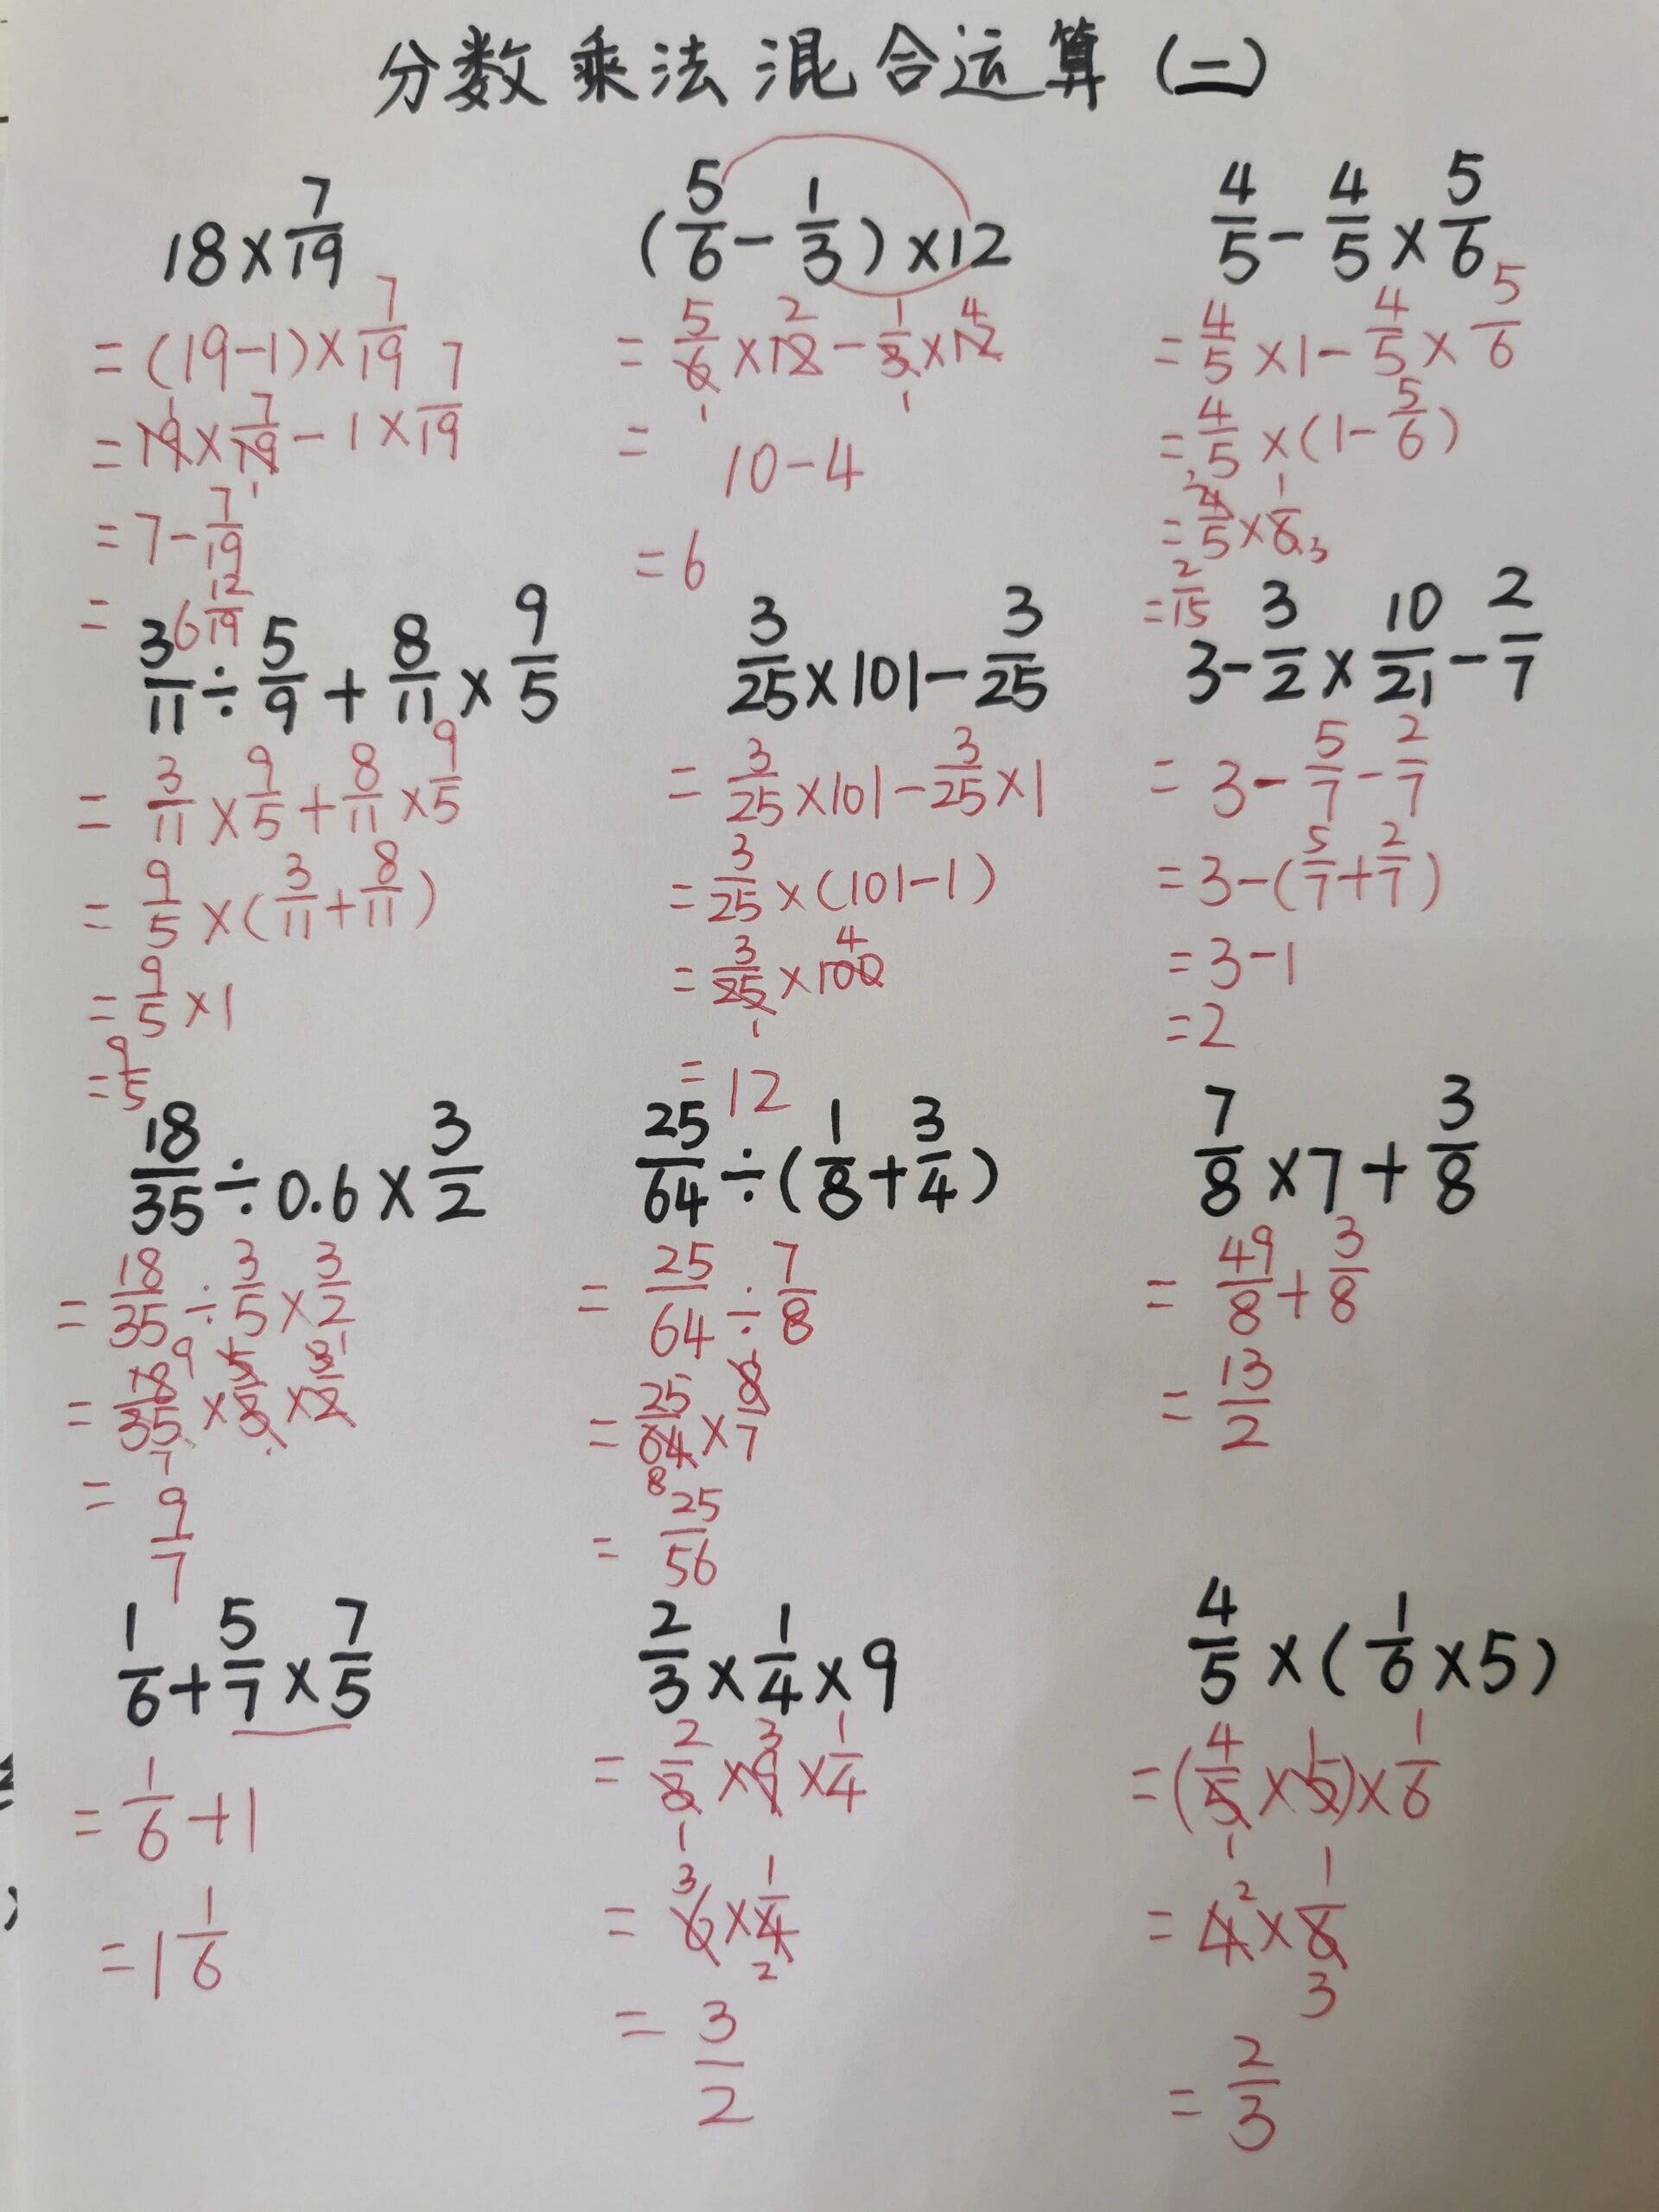 分数乘法混合运算(二)
18×7/19
=(19-1)×7/19
=19×7/19-1×7/19
=7-7/19
=6 12/19
(5/6-1/3)×12
=5/6×12-1/3×12
=10-4
=6
4/5-4/5×5/6
=4/5×1-4/5×5/6
=4/5×(1-5/6)
=4/5×1/6
=2/15
3/11÷5/9+8/11×9/5
=3/11×9/5+8/11×9/5
=9/5×(3/11+8/11)
=9/5×1
=9/5
3/25×101-3/25
=3/25×101-3/25×1
=3/25×(101-1)
=3/25×100
=12
3-3/2×10/21-2/7
=3-5/7-2/7
=3-(5/7+2/7)
=3-1
=2
18/35÷0.6×3/2
=18/35÷3/5×3/2
=18/35×5/3×3/2
=9/7
25/64÷(1/8+3/4)
=25/64÷7/8
=25/64×8/7
=25/56
7/8×7+3/8
=49/8+3/8
=13/2
1/6+5/7×7/5
=1/6+1
=1 1/6
2/3×1/4×9
=2/3×9×1/4
=6×1/4
=3/2
4/5×(1/6×5)
=(4/5×5)×1/6
=4×1/6
=2/3